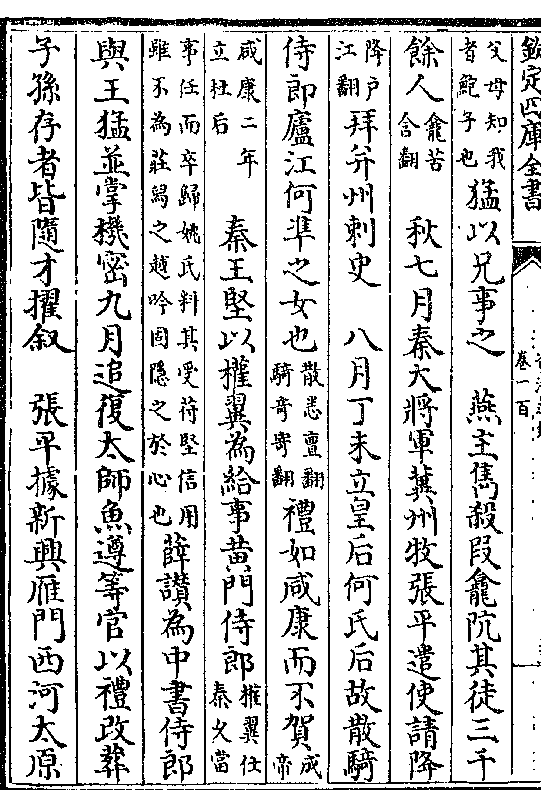 欽定四庫全書
卷一百
父母知我者鮑子也猛以兄事之　燕主雋殺段龕阬其徒三千
餘人龕苦含翻　秋七月秦大將軍冀州牧張平遣使請降
降户江翻拜并州刺史　八月丁未立皇后何氏后故散騎
侍郎廬江何準之女也散悉亶翻騎奇寄翻禮如咸康而不賀成帝
咸康二年立杜后　秦王堅以權翼為給事黄門侍郎權翼仕秦久當
事任而卒歸姚氏料其受苻堅信用雖不為莊舄之越吟固隱之於心也薛讚為中書侍郎
與王猛並掌機密九月追復太師魚遵等官以禮改葬
子孫存者皆隨才擢叙　張平據新興雁門西河太原